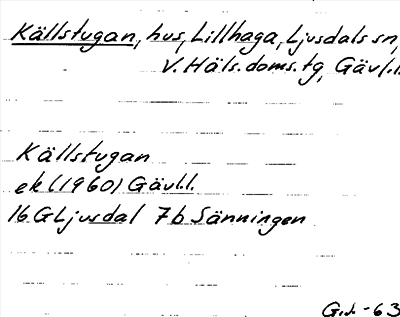 Källstugan, hus, Lillhaga, Ljusdals sn,
V. Häls. doms. tg, Gävl.l.
Källstugan
ek (1960) Gävl.l.
16 G Ljusdal 7b Sänningen
G.J. -63